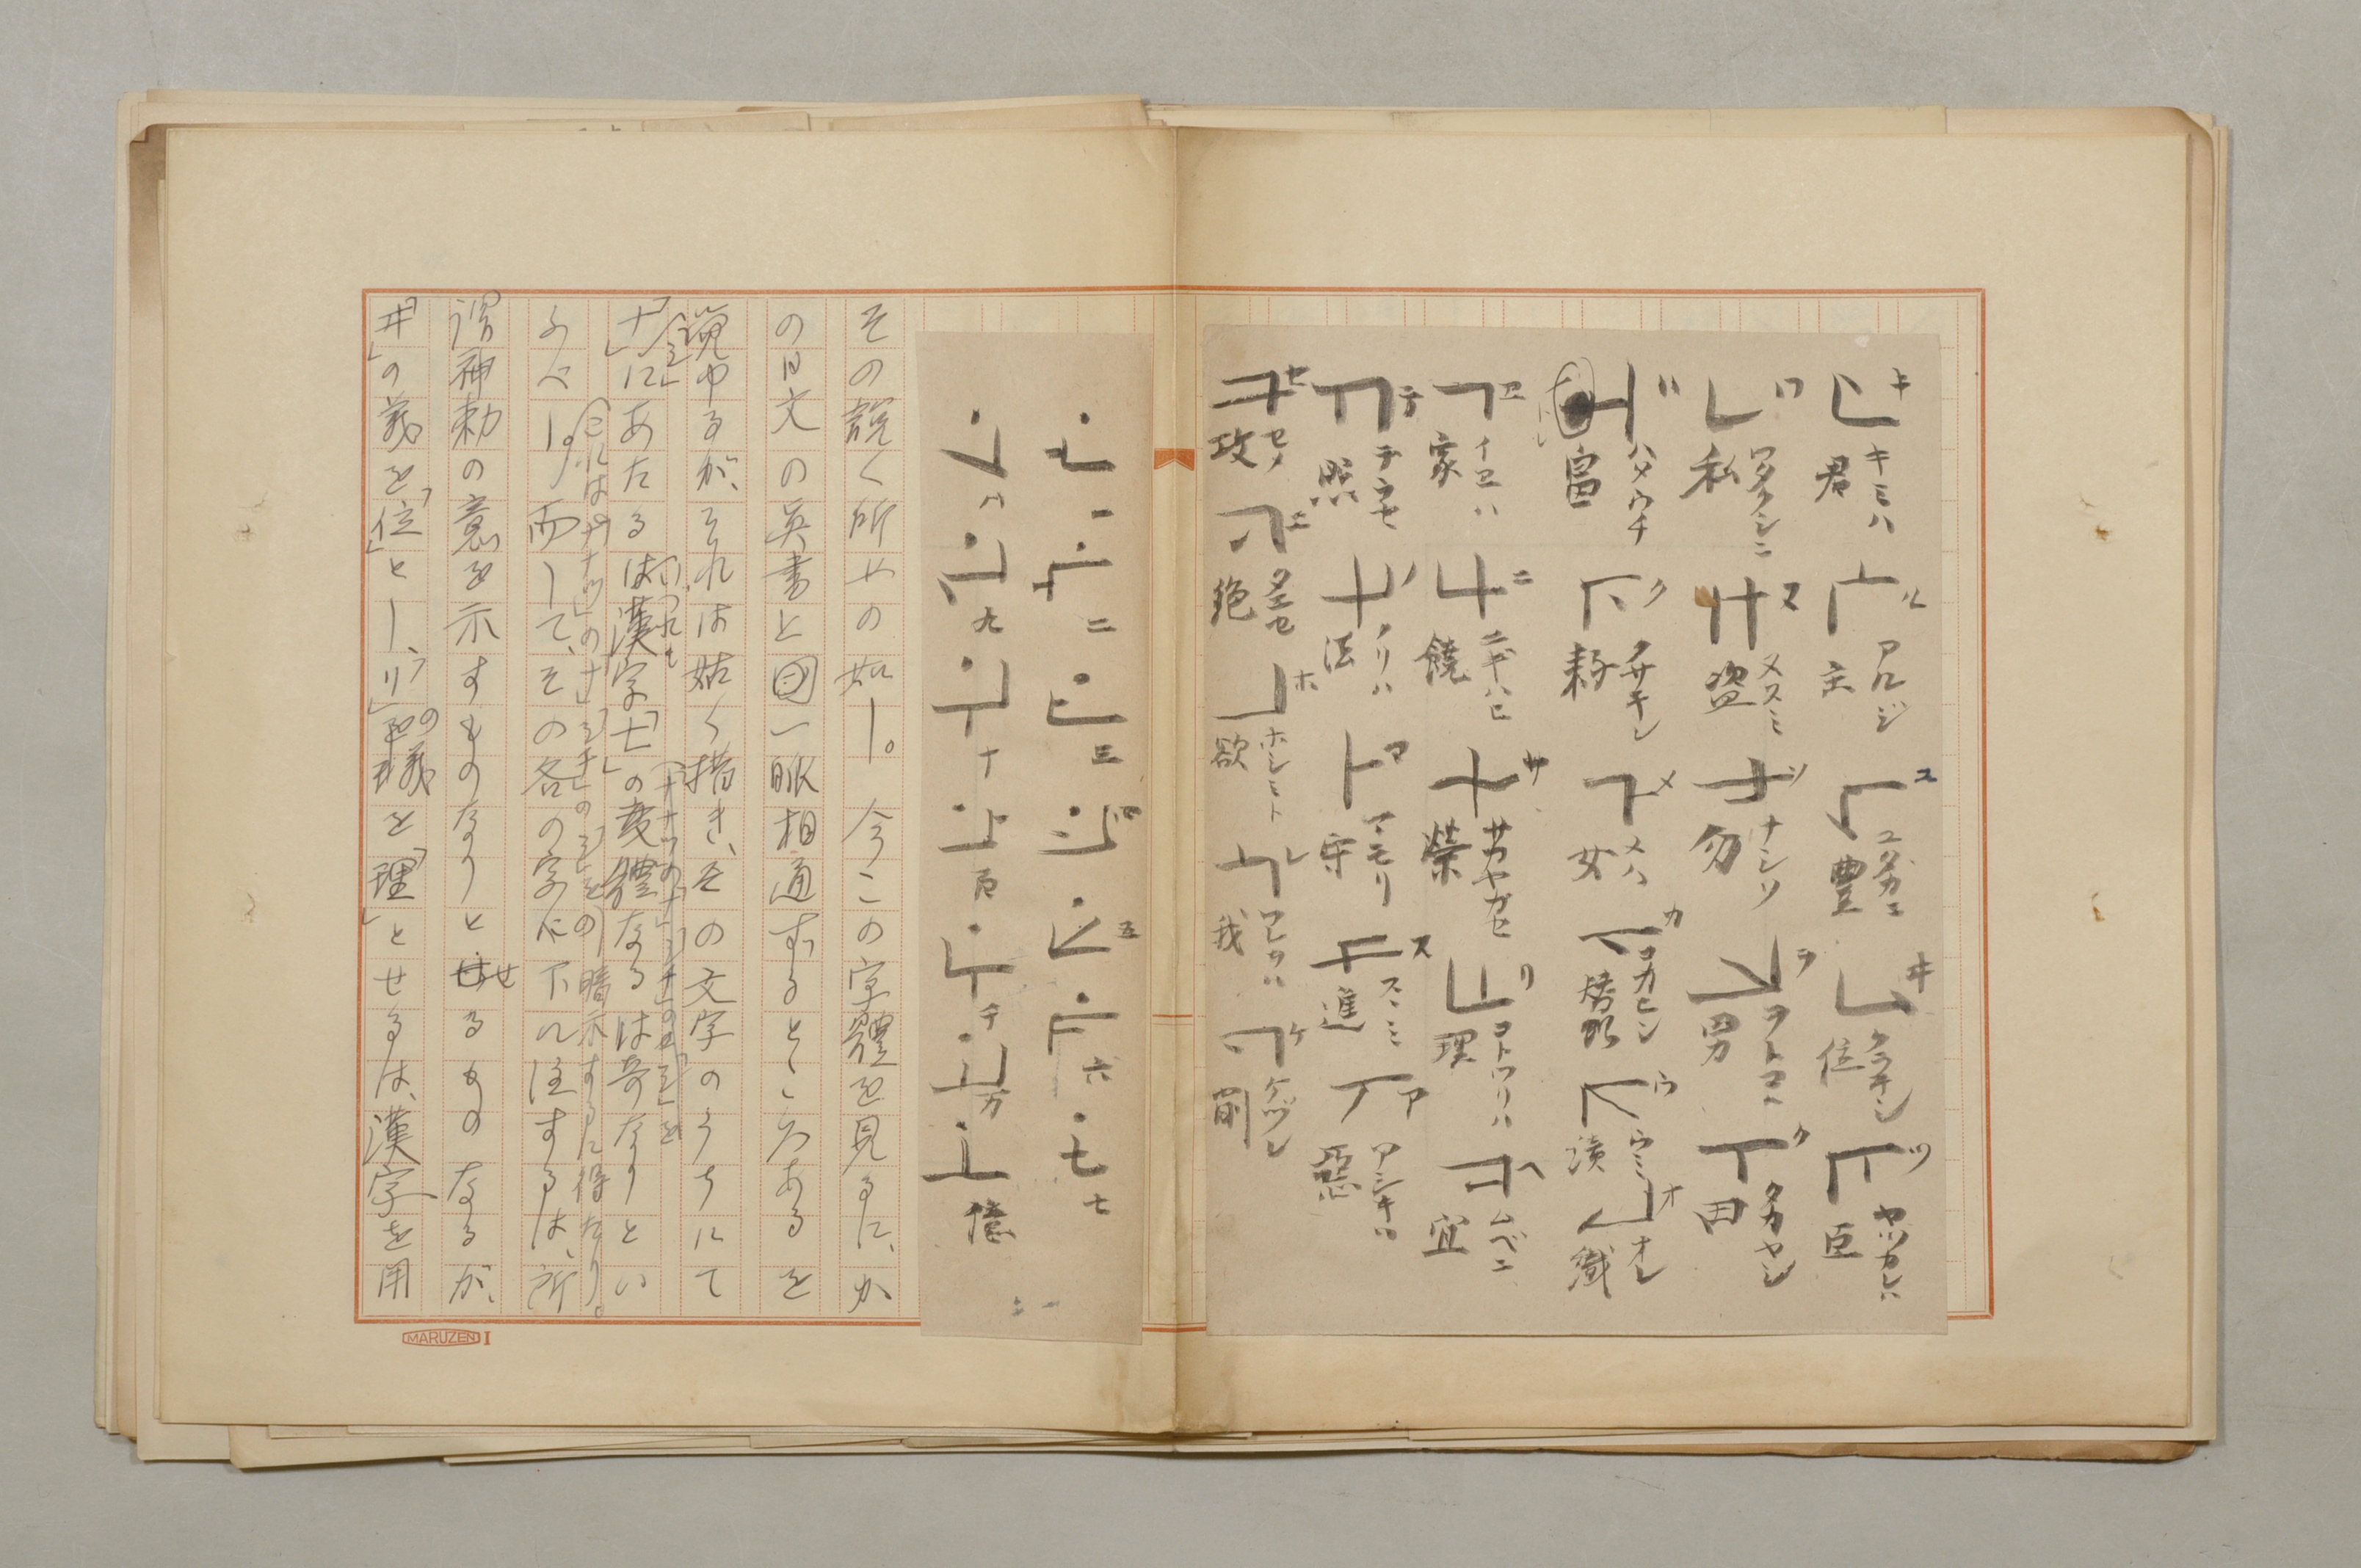 キ キミハ 君
ル アルジ 主
ユ ユタカニ 豊
ヰ クラヰシ 位
ツ ヤツカレハ 臣
ワ ワタクシニ 私
ヌ ヌスミ 盗
ソ ナシソ 勿
ヲ ヲトコハ 男
タ タカヤシ 田
ハ ハタウチ 畠
ク クサキレ 耘
メ メハ 女
カ コカヒシ
ウ ウミ 績
オ オレ 織
エ イエハ 家
ニ ニギハヒ 饒
サ サカヤカセ 榮
リ コトワリハ 理
ヘ ムベニ 宜
テ テラセ 照
ノ ノリハ 法
マ マモリ 守
ス スヽミ 進
ア アシキハ 惡
セ セメ 攻
エ タエセ 絶
ホ ホシミト 欲
レ ワレヲハ 我
ケ ケヅレ 削
一 二 三 四 五 六 七
八 九 十 百 千 万 億
その説く所やの如し。今この字體を見るに、か
の日文の眞書と一脈相通ずるところあるを
覺ゆるが、それは姑く措き、その文字のうちにて
「ナ」にあたるは漢字「七」の変體なるは奇なりとい
ふべし。而して、その各の字に下に注するは、所
謂神勅の意を示すものなりとせるものなるが、
「ヰ」の義を「位」とし、「リ」の義を「理」とせるは、漢字を用
MARUZEN I